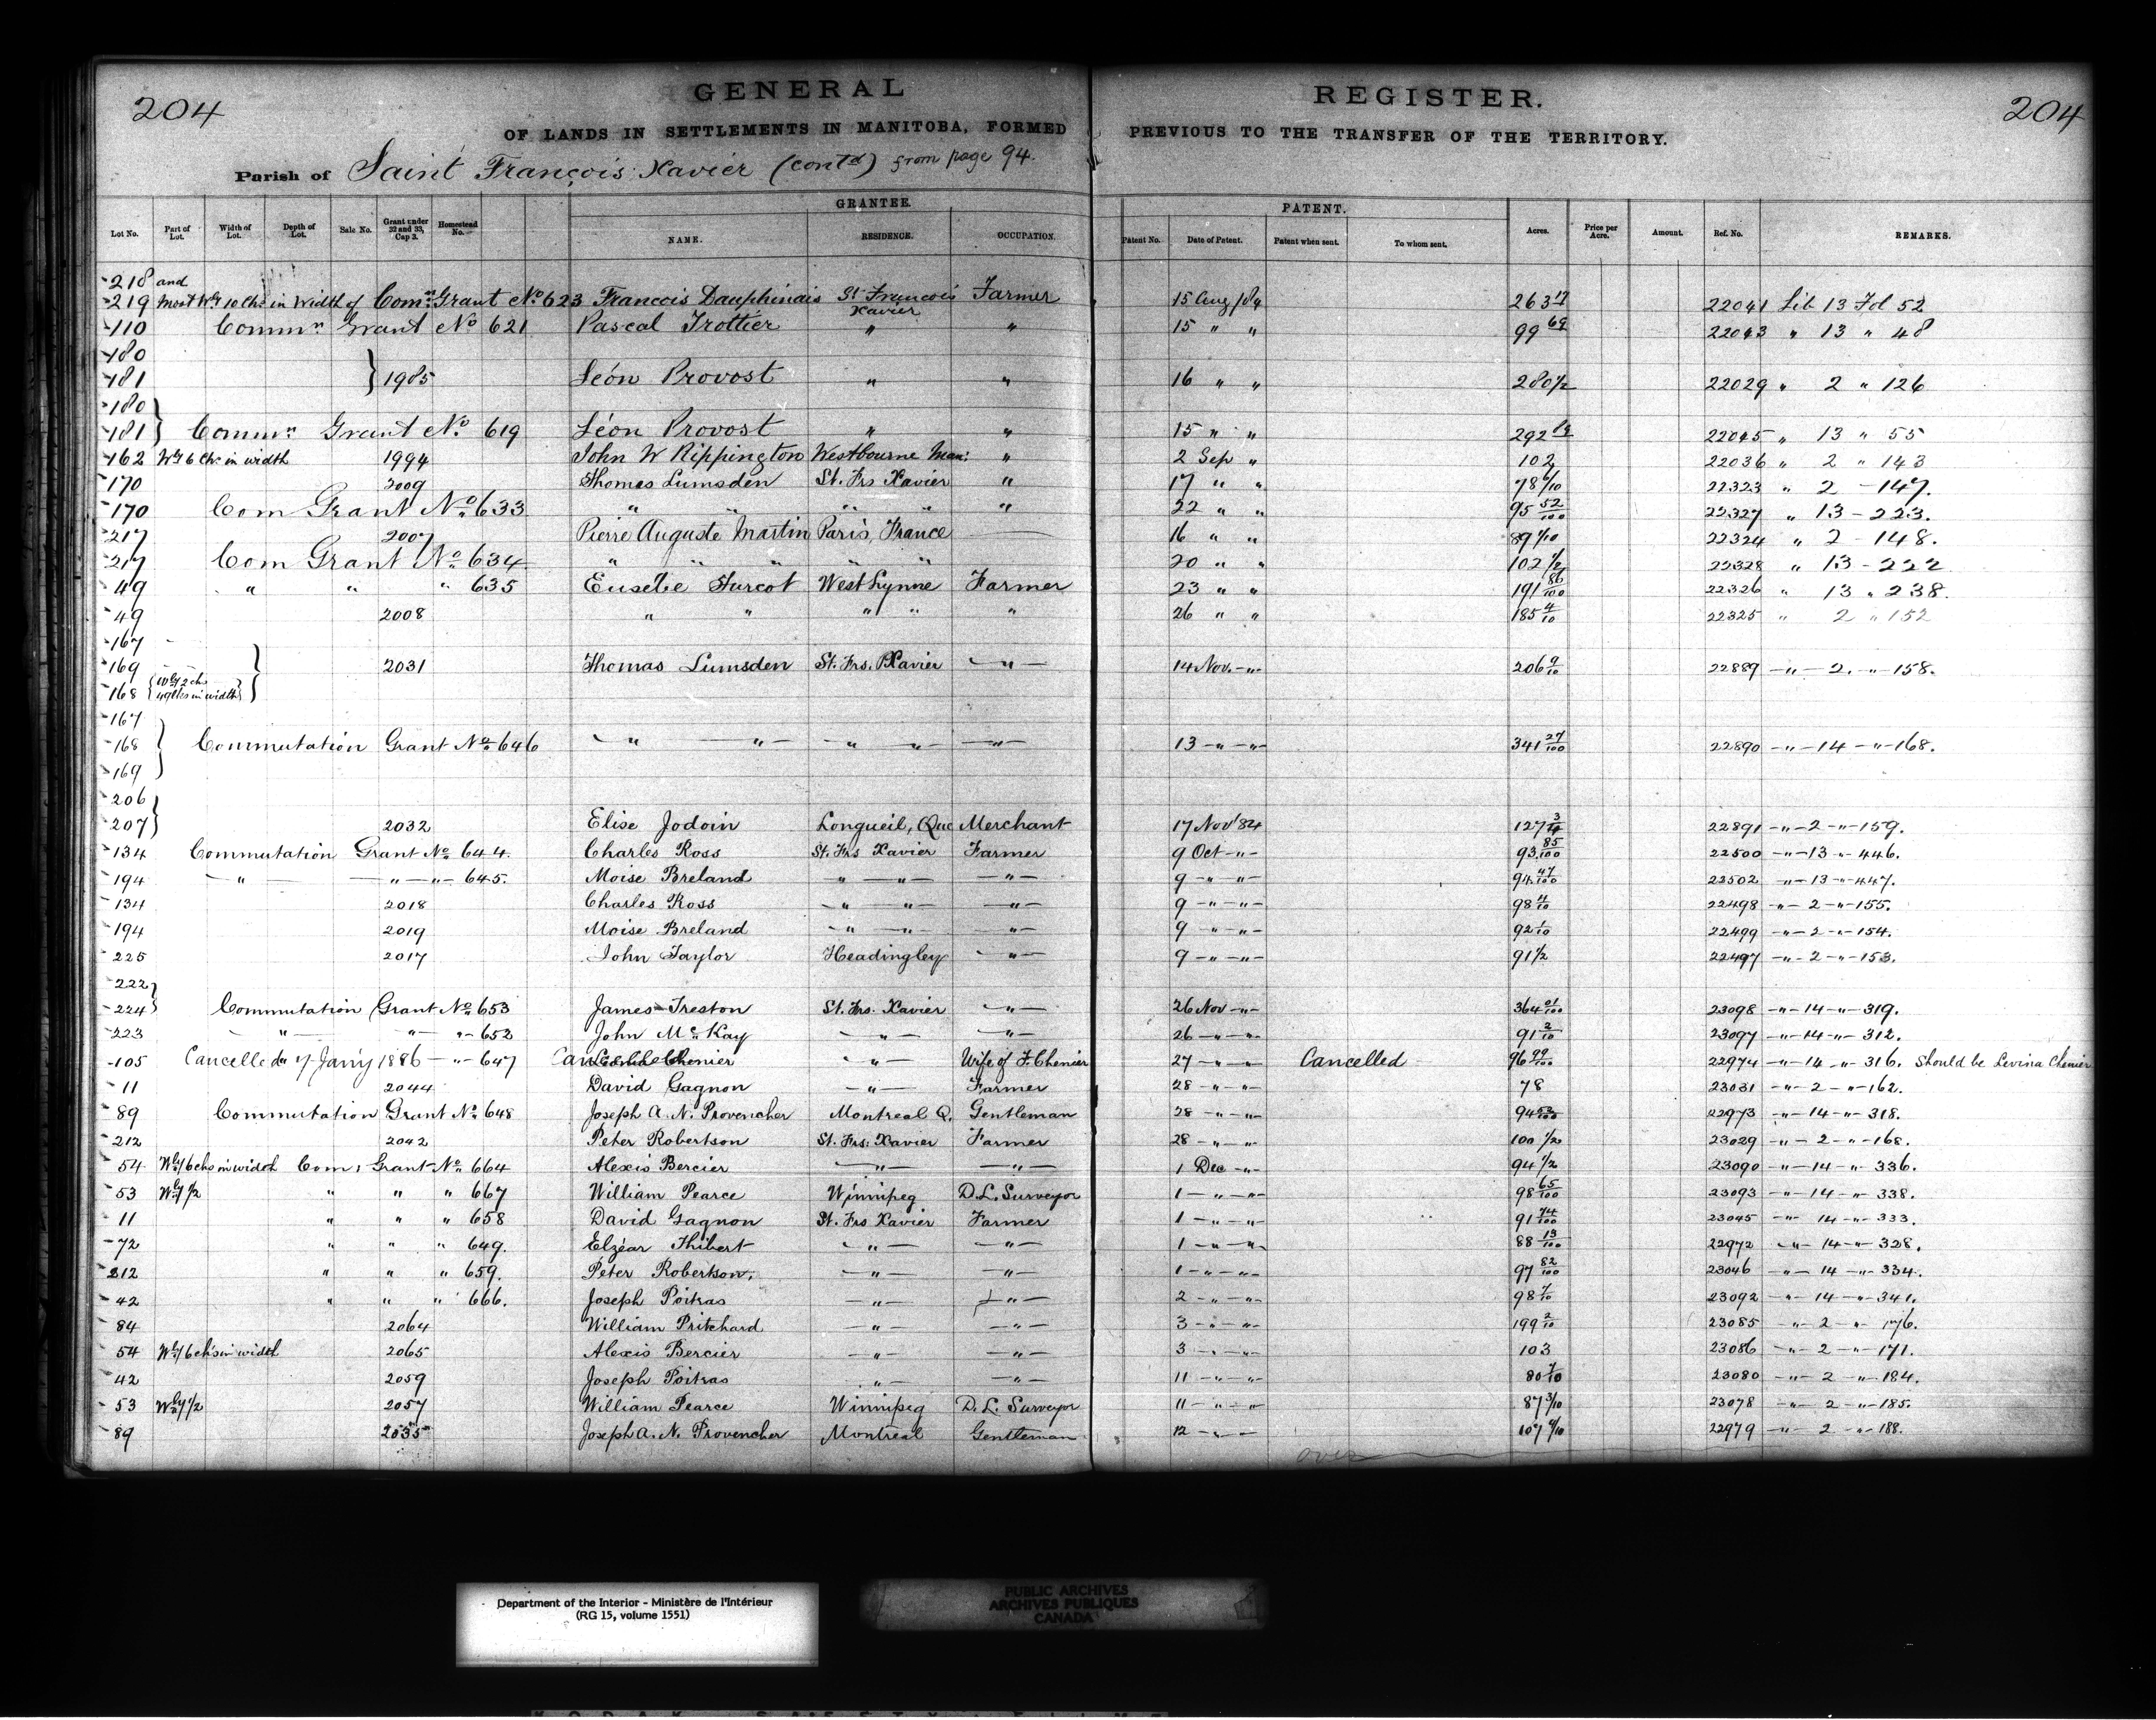 204
GENERAL REGISTER.
204
OF LANDS IN SETTLEMENTS IN MANITOBA, FORMED PREVIOUS TO THE TRANSFER OF THE TERRITORY.
Parish of Saint François Xavier (contd) from page 94.
GRANTEE. PATENT.
Lot No. Part of Lot. Width of Lot. Depth of Lot. Sale No. Grant under 32 and 33, Cap 3. Homestead No. NAME. RESIDENCE. OCCUPATION. Patent No. Date of Patent. Patent when sent. To whom sent. Acres. Price per Acre. Amount. Ref. No. REMARKS.
218 and
219 Most Wly 10 Chs in Width of Comn Grant No 623 Francois Dauphinais St François Xavier Farmer 15 Aug /84 263 17 22041 Lib 13 Fol 52
110 Commn Grant No 621 Pascal Trottier " " 15 " " 99 69 22043 " 13 " 48
180
181 } 1985 Léon Provost " " 16 " " 280 1/2 22029 " 2 " 126
180
181 } Commn Grant No. 619 Léon Provost " " 15 " " 292 22045 " 13 " 55
162 Wly 6 Chs in width 1994 John W Rippington Westbourne Man: " 2 Sep " 102 22036 " 2 " 143
170 2009 Thomas Lumsden St. Frs Xavier " 17 " " 78 6/10 22323 " 2 - 147.
170 Com Grant No. 633 " " " " " 22 " " 95 52/100 22327 " 13 - 223.
217 2007 Pierre Auguste Martin Paris, France — 16 " " 89 1/10 22324 " 2 - 148.
217 Com Grant No. 634 " " " " " 20 " " 102 1/2 22328 " 13 - 222
49 " " " 635 Eusebe Turcot West Lynne Farmer 23 " " 191 86/100 22326 " 13 " 238.
49 2008 " " " " " 26 " " 185 4/10 22325 " 2 " 152
167
169 2031 Thomas Lumsden St. Frs. Xavier " 14 Nov. " 206 9/10 22889 " 2. " 158.
168 { Wly 2 chs 49 lks in width }
167
168 } Commutation Grant No. 646 " " " " " 13 " " 341 27/100 22890 " 14 " 168.
169
206
207 } 2032 Elise Jodoin Longueil, Que Merchant 17 Nov '84 127 3/4 22891 " 2 " 159.
134 Commutation Grant No. 644. Charles Ross St. Frs Xavier Farmer 9 Oct " 93 85/100 22500 " 13 " 446.
194 " " " 645. Moise Breland " " " 9 " " 94 47/100 22502 " 13 " 447.
134 2018 Charles Ross " " " 9 " " 98 4/10 22498 " 2 " 155.
194 2019 Moise Breland " " " 9 " " 92 1/10 22499 " 2 " 154.
225 2017 John Taylor Headingley " 9 " " 91 1/2 22497 " 2 " 153.
222
224 } Commutation Grant No. 653 James Freston St. Frs. Xavier " 26 Nov " 364 01/100 23098 " 14 " 319.
223 " " " 652 John McKay " " 26 " " 91 2/10 23097 " 14 " 312.
105 Cancelled 7 Jany 1886 " 647 Cancelled Chenier " Wife of F. Chenier 27 " " Cancelled 96 99/100 22974 " 14 " 316. Should be Levina Chenier
11 2044 David Gagnon " Farmer 28 " " 78 23031 " 2 " 162.
89 Commutation Grant No. 648 Joseph A. N. Provencher Montreal Q. Gentleman 28 " " 94 53/100 22973 " 14 " 318.
212 2042 Peter Robertson St. Frs. Xavier Farmer 28 " " 100 1/2 23029 " 2 " 168.
54 Wly 6 chs in width Com: Grant No. 664 Alexis Bercier " " 1 Dec " 94 1/2 23090 " 14 " 336.
53 Wly 1/2 " " " 667 William Pearce Winnipeg D.L. Surveyor 1 " " 98 65/100 23093 " 14 " 338.
11 " " " 658 David Gagnon St. Frs Xavier Farmer 1 " " 91 74/100 23045 " 14 " 333.
72 " " " 649. Elzéar Thibert " " 1 " " 88 13/100 22972 " 14 " 328.
212 " " " 659. Peter Robertson. " " 1 " " 97 82/100 23046 " 14 " 334.
42 " " " 666. Joseph Poitras " " 2 " " 98 7/10 23092 " 14 " 341.
84 2064 William Pritchard " " 3 " " 199 2/10 23085 " 2 " 176.
54 Wly 6 chs in width 2065 Alexis Bercier " " 3 " " 103 23086 " 2 " 171.
42 2059 Joseph Poitras " " 11 " " 80 7/10 23080 " 2 " 184.
53 Wly 1/2 2057 William Pearce Winnipeg D.L. Surveyor 11 " " 87 3/10 23078 " 2 " 185.
89 2035 Joseph A. N. Provencher Montreal Gentleman 12 " 107 9/10 22979 " 2 " 188.
over
Department of the Interior - Ministère de l'Intérieur
(RG 15, volume 1551)
PUBLIC ARCHIVES
ARCHIVES PUBLIQUES
CANADA